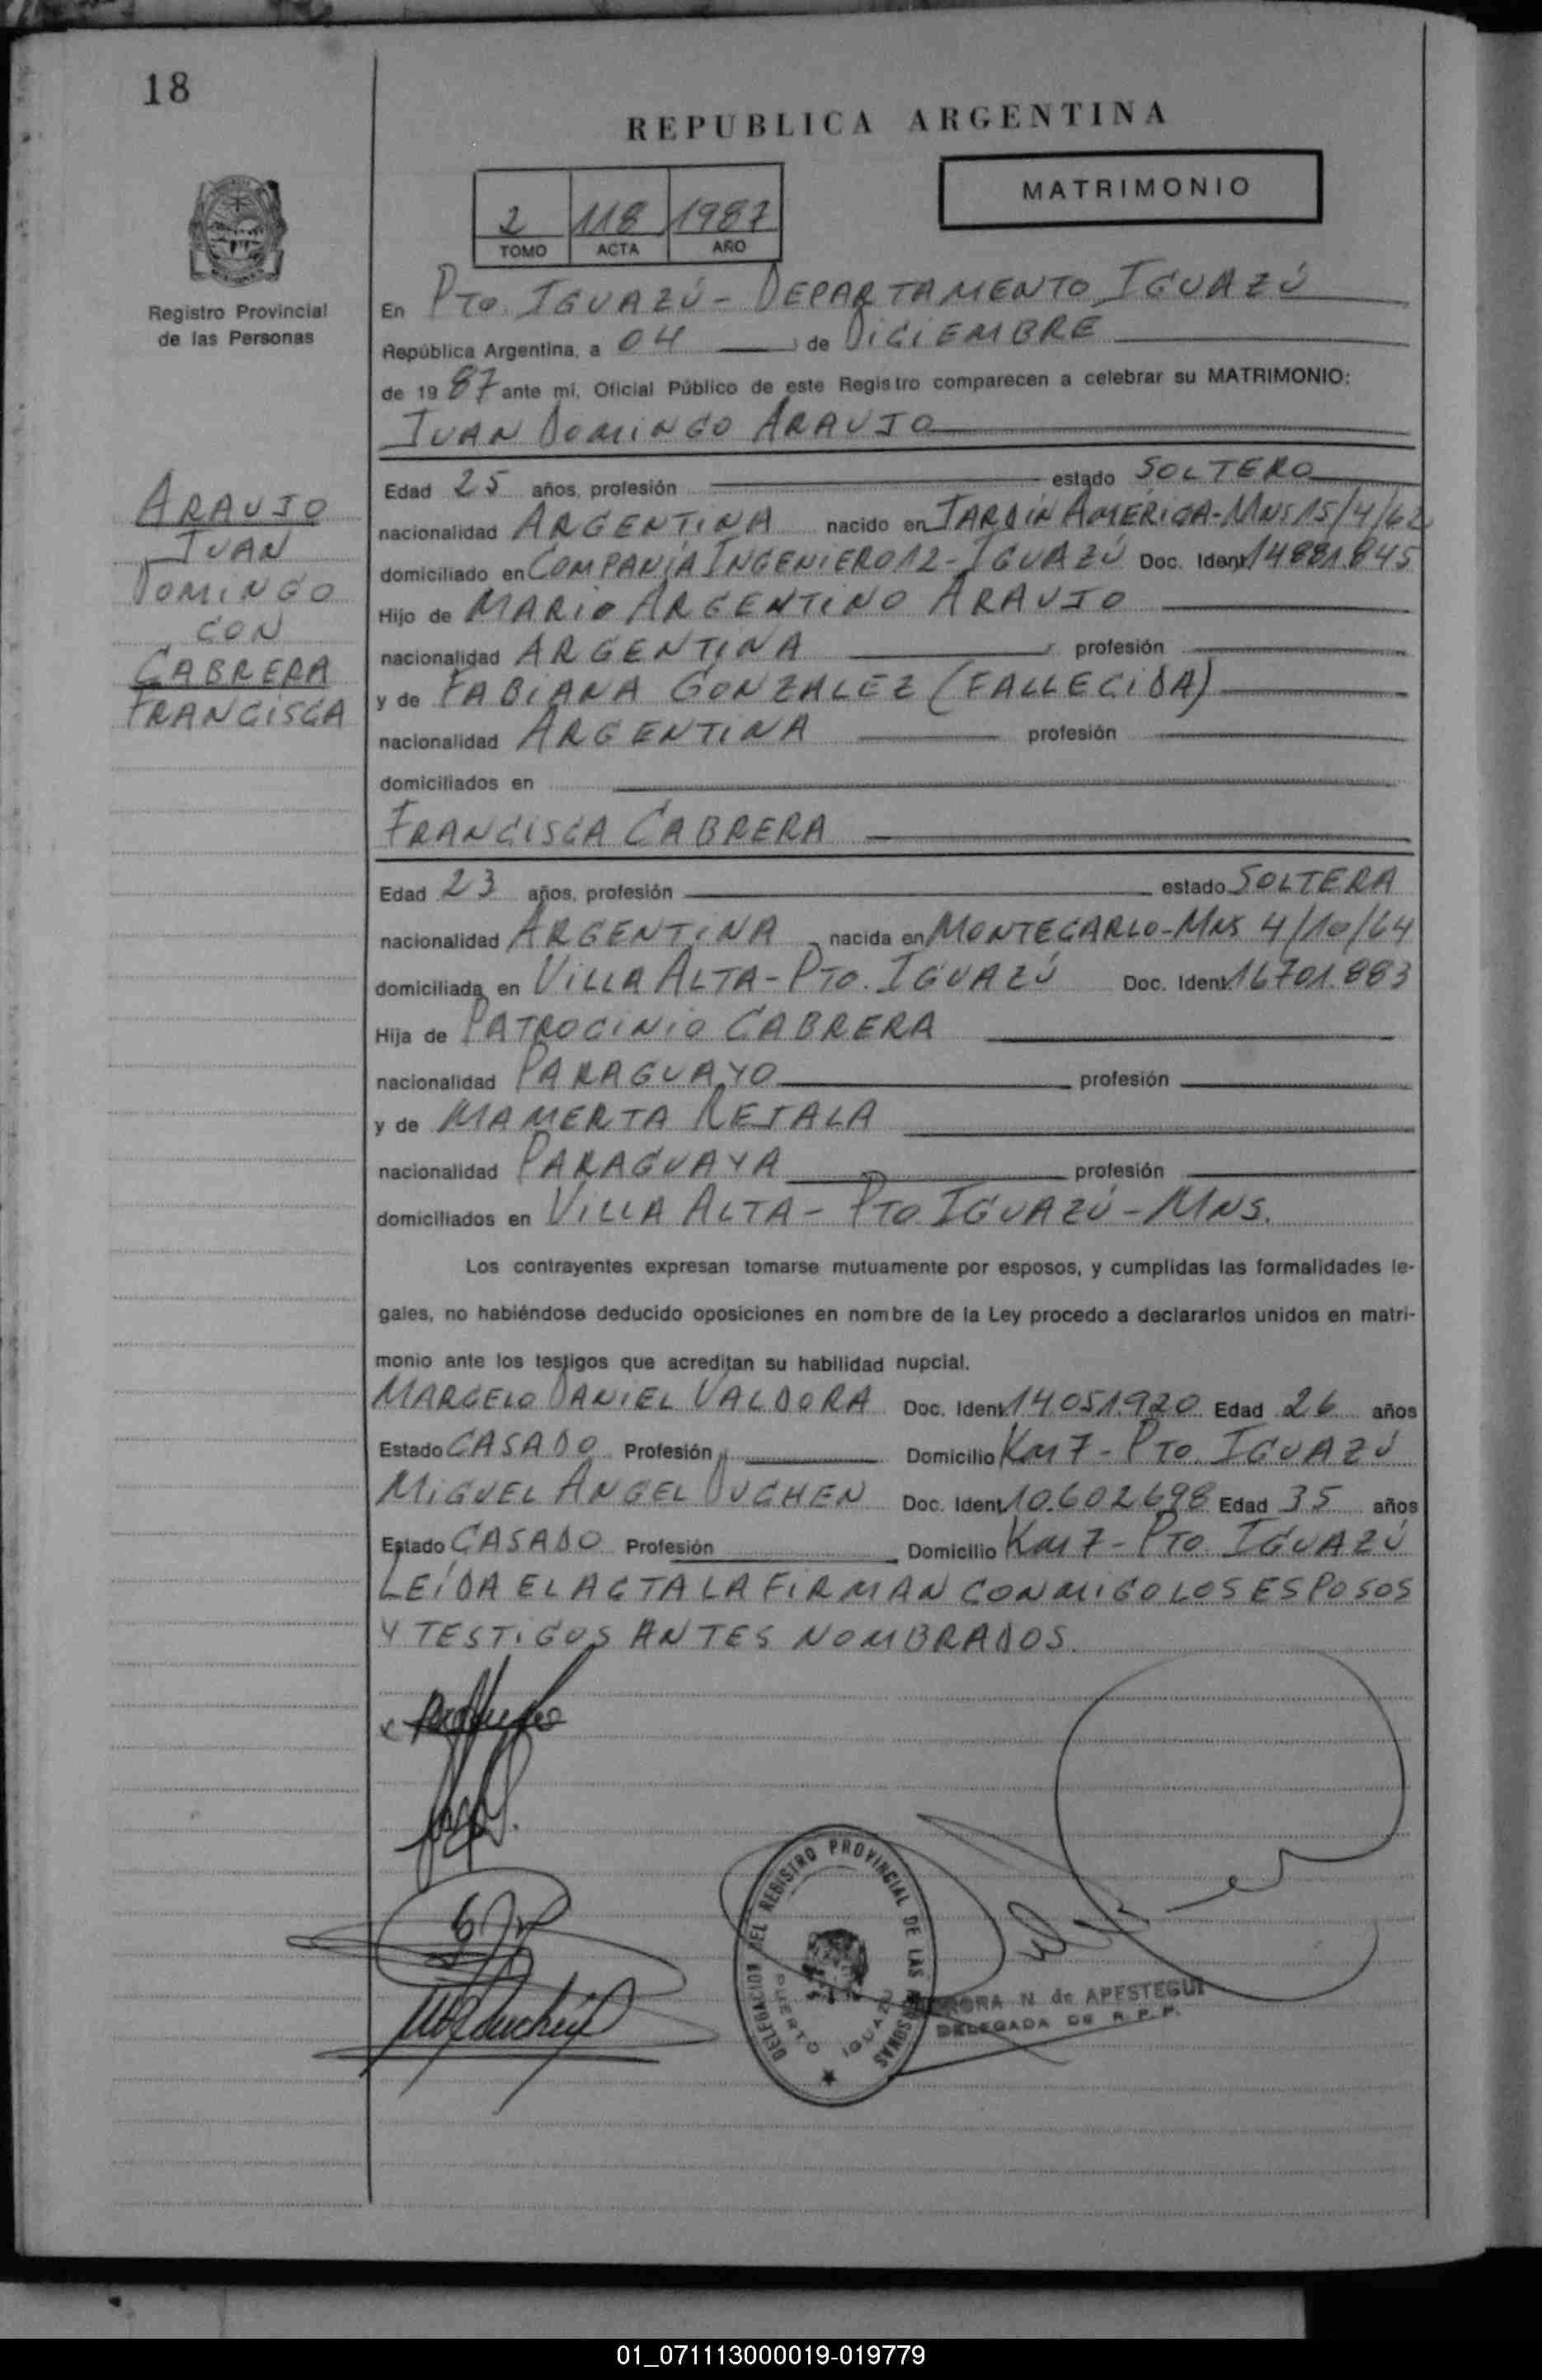 18
REPUBLICA ARGENTINA
MATRIMONIO
2 118 1987
TOMO ACTA AÑO
Registro Provincial
de las Personas
En PTO. IGUAZÚ - DEPARTAMENTO IGUAZÚ
República Argentina, a 04 de DICIEMBRE
de 19 87 ante mí, Oficial Público de este Registro comparecen a celebrar su MATRIMONIO:
JUAN DOMINGO ARAUJO
ARAUJO
JUAN
DOMINGO
CON
CABRERA
FRANCISCA
Edad 25 años, profesión estado SOLTERO
nacionalidad ARGENTINA nacido en JARDÍN AMÉRICA-MNS 15/4/62
domiciliado en COMPAÑÍA INGENIERO 12 - IGUAZÚ Doc. Ident 14881.845
Hijo de MARIO ARGENTINO ARAUJO
nacionalidad ARGENTINA profesión
y de FABIANA GONZALEZ (FALLECIDA)
nacionalidad ARGENTINA profesión
domiciliados en
FRANCISCA CABRERA
Edad 23 años, profesión estado SOLTERA
nacionalidad ARGENTINA nacida en MONTECARLO-MNS 4/10/64
domiciliada en VILLA ALTA - PTO. IGUAZÚ Doc. Ident 16701.883
Hija de PATROCINIO CABRERA
nacionalidad PARAGUAYO profesión
y de MAMERTA RETALA
nacionalidad PARAGUAYA profesión
domiciliados en VILLA ALTA - PTO IGUAZÚ - MNS.
Los contrayentes expresan tomarse mutuamente por esposos, y cumplidas las formalidades le-
gales, no habiéndose deducido oposiciones en nombre de la Ley procedo a declararlos unidos en matri-
monio ante los testigos que acreditan su habilidad nupcial.
MARCELO DANIEL VALDORA Doc. Ident 14.051.920 Edad 26 años
Estado CASADO Profesión Domicilio KM 7 - PTO. IGUAZÚ
MIGUEL ÁNGEL DUCHEN Doc. Ident 10.602.698 Edad 35 años
Estado CASADO Profesión Domicilio KM 7 - PTO IGUAZÚ
LEÍDA EL ACTA LA FIRMAN CONMIGO LOS ESPOSOS
Y TESTIGOS ANTES NOMBRADOS.
DELEGACION DEL REGISTRO PROVINCIAL DE LAS PERSONAS
PUERTO IGUAZU
N de APESTEGUI
DELEGADA DE R. P. P.
01_071113000019-019779